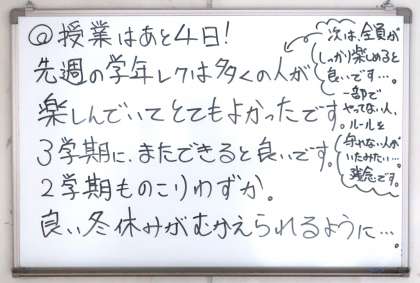 @授業はあと4日!
先週の学年レクは多くの人が
楽しんでいてとてもよかったです。
3学期に、またできると良いです。
2学期ものこりわずか。
良い冬休みがむかえられるように…。
次は、全員が
しっかり楽しめると
良いです…。
一部で
やってない人、
ルールを
守れない人が
いたみたい…
残念です。